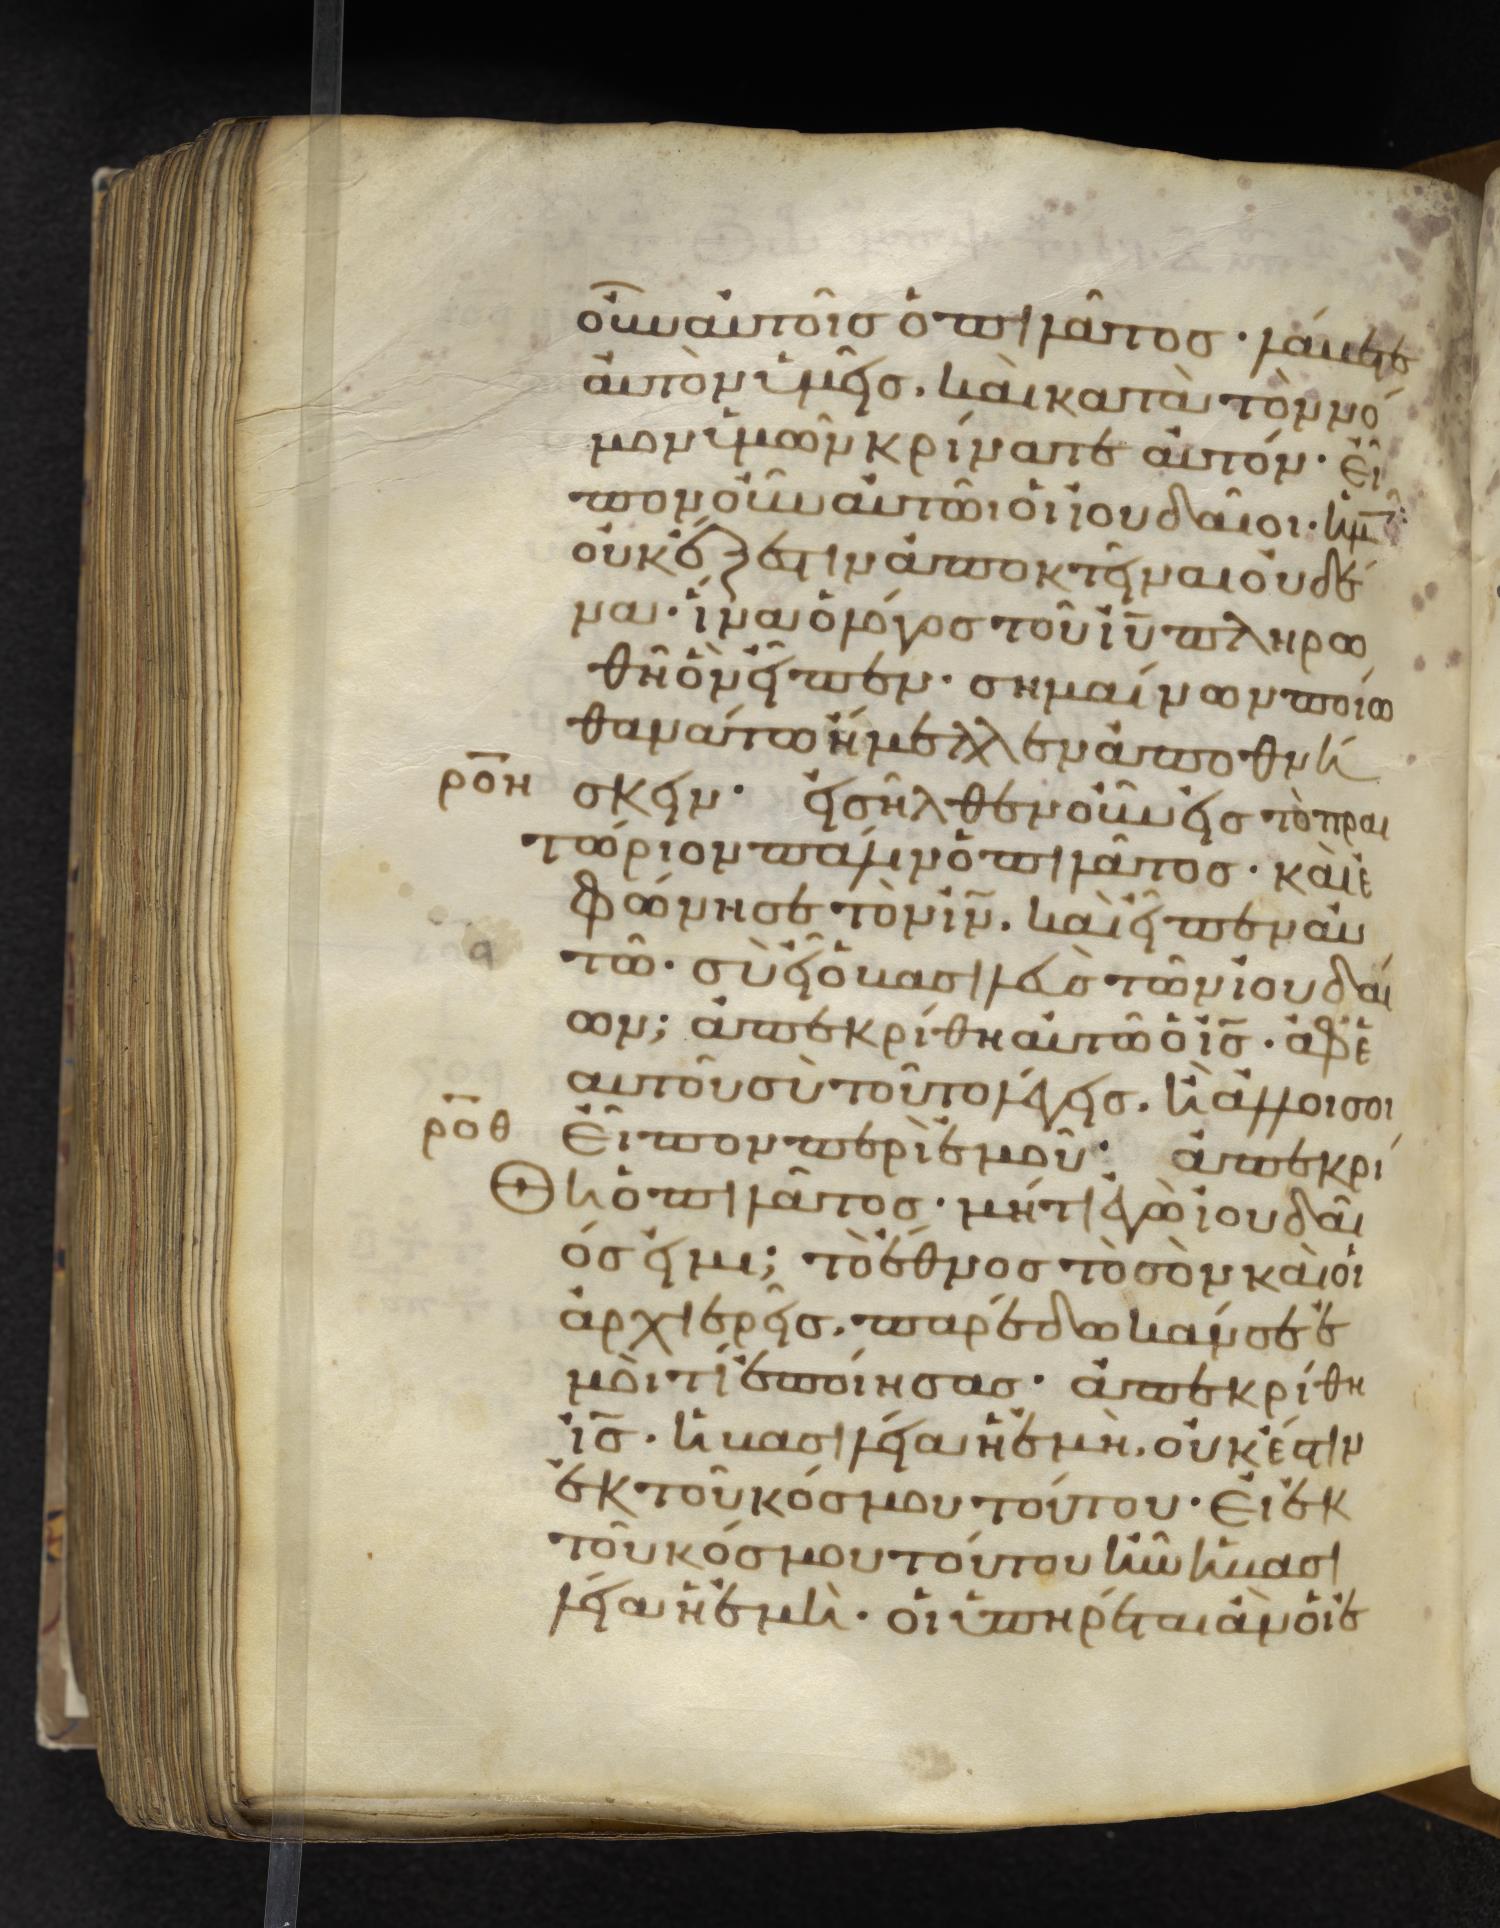 οὖν αὐτοῖσ ὁ πιλᾶτοσ · λάβετε
αὐτὸν ὑμεῖσ. καὶ κατὰ τὸν νό
μον ὑμῶν κρίνατε αὐτόν · εἶ
πον οὖν αὐτῶ οἱ ἰουδαῖοι · ἡμῖ
οὐκ ἔξεστιν ἀποκτεῖναι οὐδέ
να · ἵνα ὁ λόγοσ τοῦ ἰῦ πληρω
θῆ ὃν εἶπεν · σημαίνων ποίω
θανάτω ἤμελλεν ἀποθνή
ρο̅η σκειν · εἰσῆλθεν οὖν εἰσ τὸ πραι
τώριον πάλιν ὁ πιλᾶτοσ · καὶ ἐ
φώνησε τὸν ἰν̅. καὶ εἶπεν αὐ
τῶ · σὺ εἶ ὁ βασιλεὺσ τῶν ἰουδαί
ων; ἀπεκρίθη αὐτῶ ὁ ἰσ̅ · ἀφ᾽ ἑ
αυτοῦ σὺ τοῦτο λέγεισ. ἢ ἄλλοι σοι
ρο̅θ εἶπον περὶ ἐμοῦ · ἀπεκρί
θη ὁ πιλᾶτοσ · μήτι ἐγὼ ἰουδαῖ
όσ εἰμι; τὸ ἔθνοσ τὸ σὸν καὶ οἱ
ἀρχιερεῖσ. παρέδωκάν σε ἐ
μοὶ τί ἐποίησασ · ἀπεκρίθη
ἰσ̅ · ἡ βασιλεία ἡ ἐμὴ. οὐκ ἔστιν
ἐκ τοῦ κόσμου τούτου · εἰ ἐκ
τοῦ κόσμου τούτου ἦν ἡ βασι
λεία ἡ ἐμὴ · οἱ ὑπηρέται ἂν οἱ ἐ